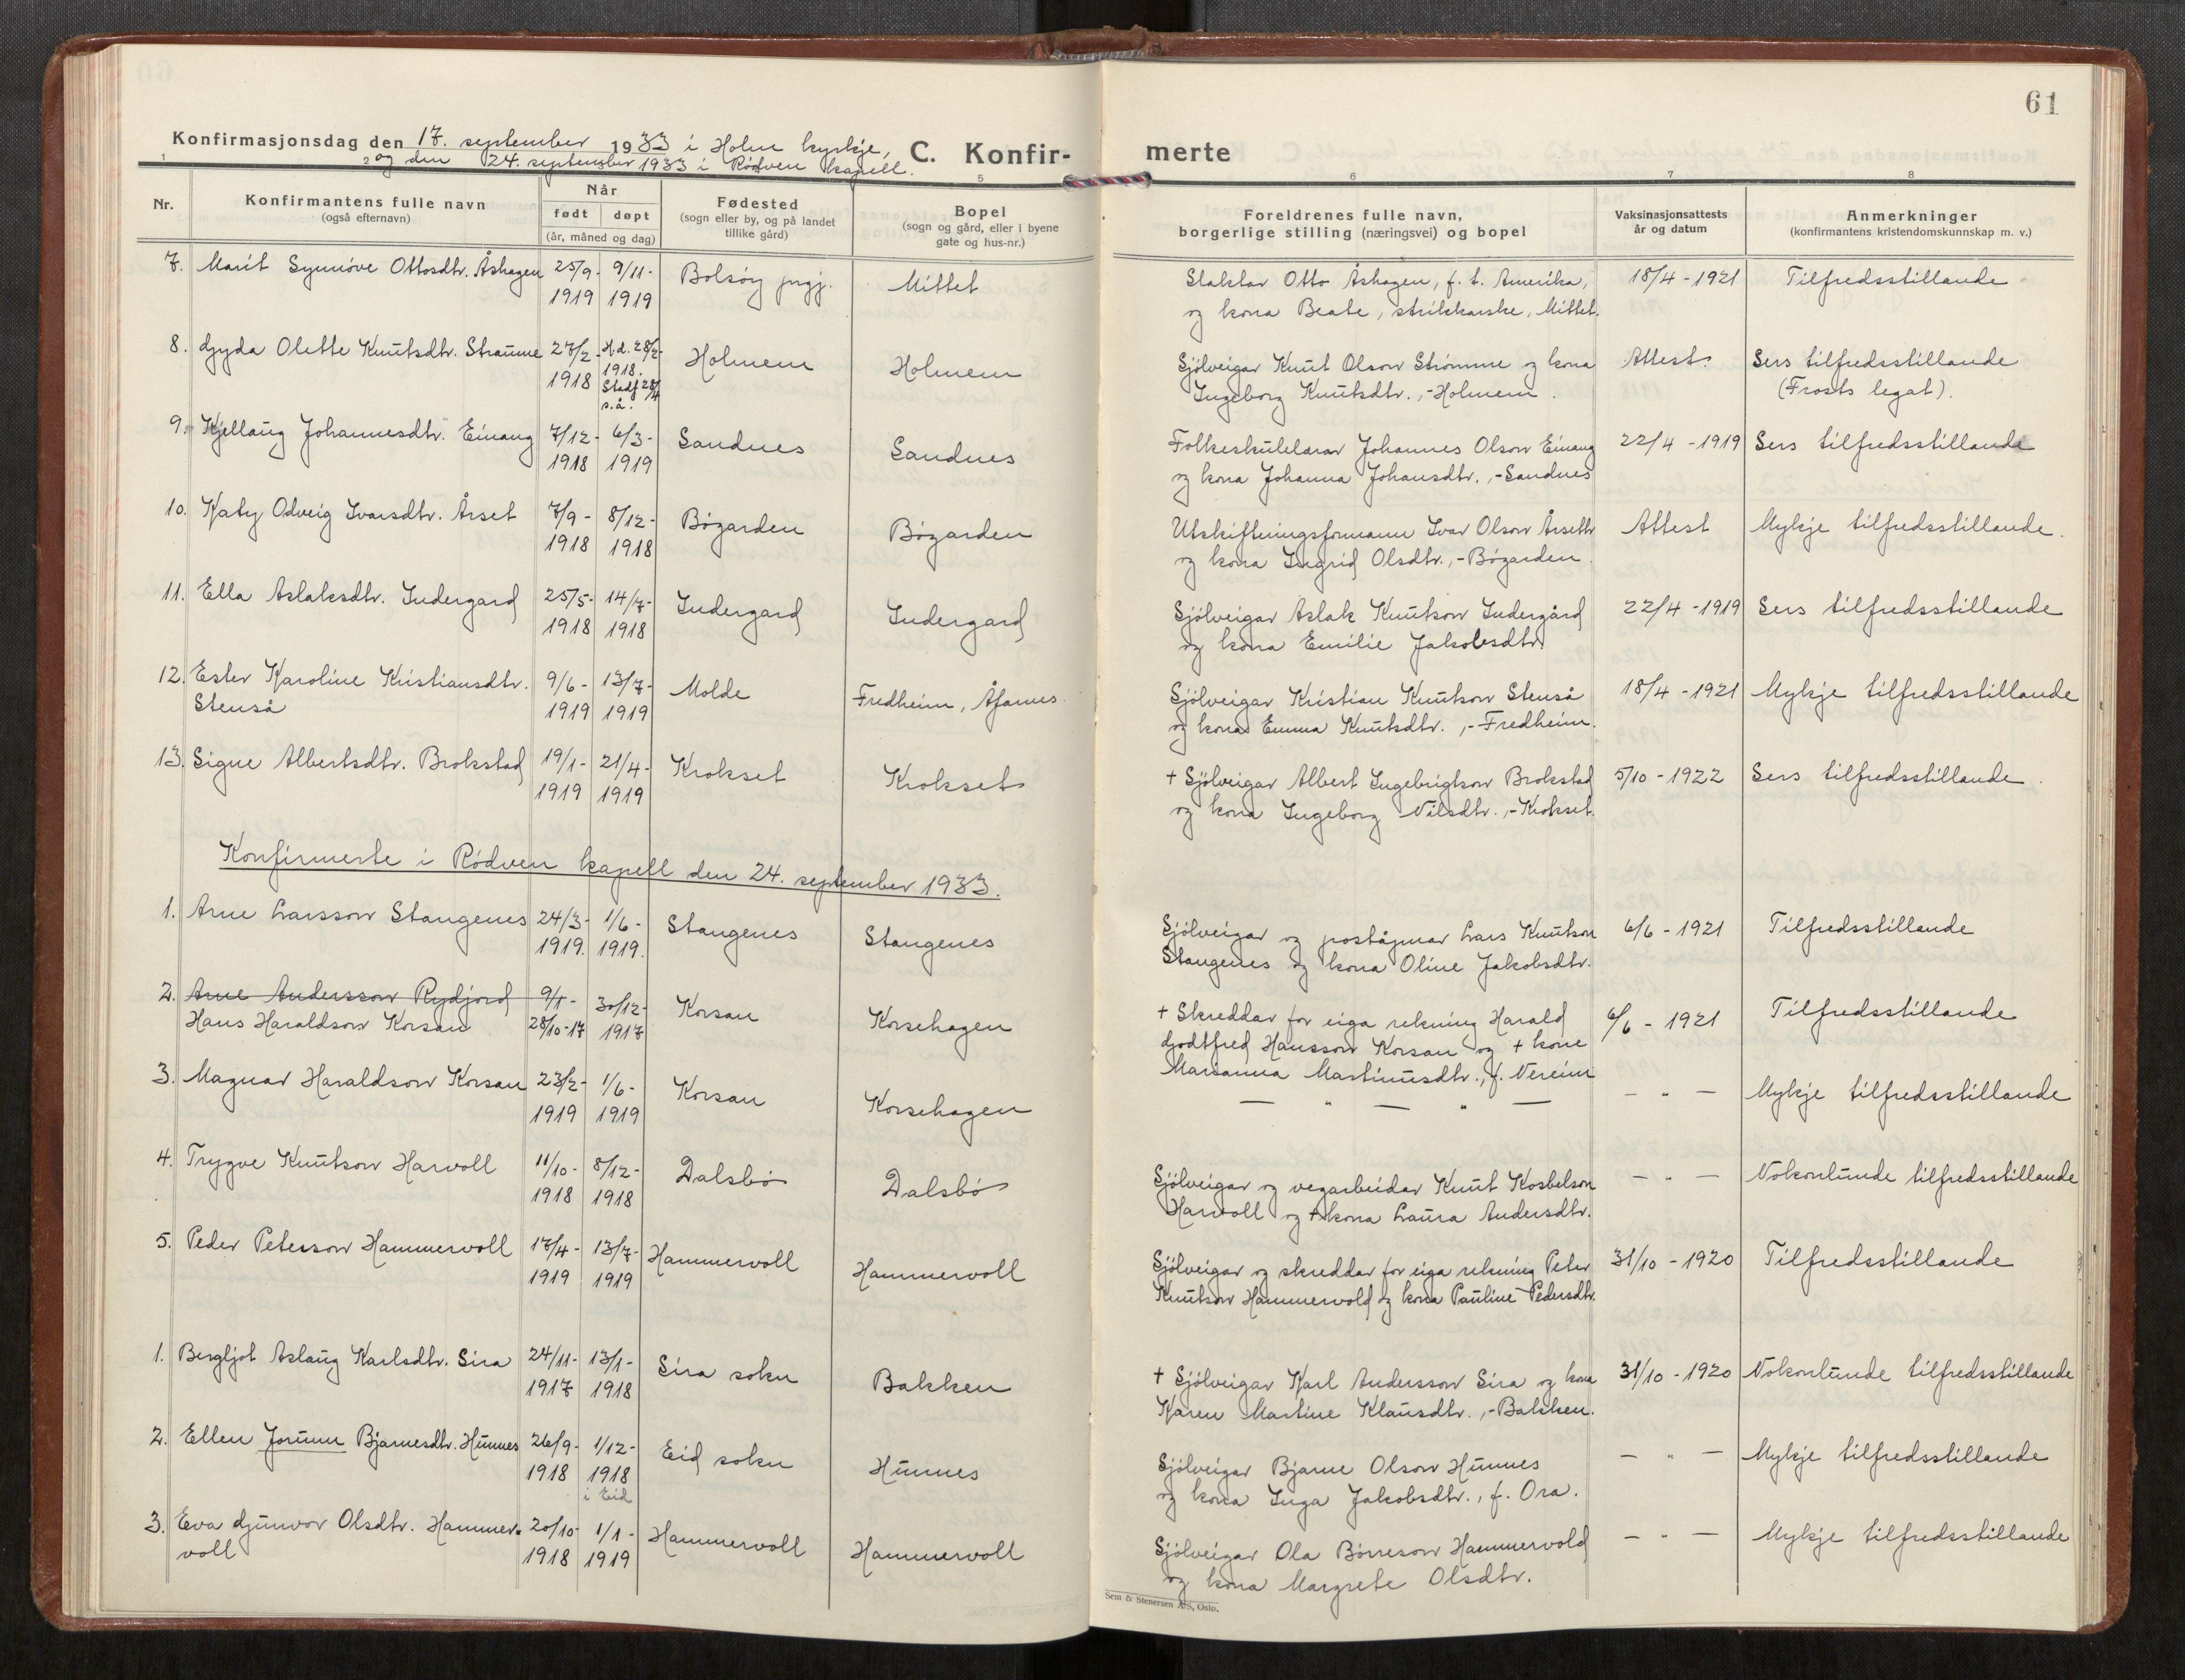 61
Konfirmasjonsdag den 17. september 1933 i Holm kyrkje,
og den 24. september 1933 i Rødven kapell.
C. Konfir-
merte
1 2 5 6 7 8
Nr.
Konfirmantens fulle navn
(også efternavn)
Når
født døpt
(år, måned og dag)
Fødested
(sogn eller by, og på landet
tillike gård)
Bopel
(sogn og gård, eller i byene
gate og hus-nr.)
Foreldrenes fulle navn,
borgerlige stilling (næringsvei) og bopel
Vaksinasjonsattests
år og datum
Anmerkninger
(konfirmantens kristendomskunnskap m. v.)
7. Marit Synnöve Ottosdtr. Åshagen 25/9- 9/11- Bolsöy prgj. Mittet Slaktar Otto Åshagen, f. t. Amerika, 18/4 - 1921 Tilfredsstillande
1919 1919 og kona Beate, strikkarske, Mittet.
8. Gyda Olette Knutsdtr. Straume 27/2- H.d. 28/2- Holmem Holmem Sjölveigar Knut Olson Strømme og kona Attest. Sers tilfredsstillande
1918 1918. Stadf 28/4 s.å. Ingeborg Knutsdtr., - Holmem. (Frosts legat).
9. Kjellaug Johannesdtr. Einang 7/12- 6/3- Sandnes Sandnes Folkeskulelærar Johannes Olson Einang 22/4 - 1919 Sers tilfredsstillande
1918 1919 og kona Johanna Johansdtr., - Sandnes
10. Katy Odveig Ivarsdtr. Årset 7/9- 8/12- Bøgarden Bøgarden Utskiftningsformann Ivar Olson Årseth Attest Mykje tilfredsstillande.
1918 1918 og kona Ingrid Olsdtr., - Bøgarden.
11. Ella Aslaksdtr. Indergard 25/5- 14/7- Indergard Indergard Sjölveigar Aslak Knutson Indergård 22/4 - 1919 Sers tilfredsstillande
1918 1918 og kona Emilie Jakobsdtr.
12. Ester Karoline Kristiansdtr. 9/6- 13/7- Molde Fredheim, Åfarnes. Sjölveigar Kristian Knutson Stenså 18/4 - 1921 Mykje tilfredsstillande
Stenså 1919 1919 og kona Emma Knutsdtr., - Fredheim.
13. Signe Albertsdtr. Brokstad 19/1- 21/4- Krokset Krokset + Sjölveigar Albert Ingebrigtson Brokstad 5/10 - 1922 Sers tilfredsstillande.
1919 1919 og kona Ingeborg Nilsdtr., - Krokset.
Konfirmerte i Rødven kapell den 24. september 1933.
1. Arne Larsson Stangenes 24/3- 1/6- Stangenes Stangenes Sjölveigar og poståpnar Lars Knutson 6/6 - 1921 Tilfredsstillande
1919. 1919. Stangenes og kona Oline Jakobsdtr.
2. Arne Andersson Rydjord 9/1- 30/12- Korsan Korsehagen + Skreddar for eiga rekning Harald 6/6 - 1921 Tilfredsstillande
Hans Haraldson Korsan 28/10-17 1917 Godtfred Hansson Korsan og + kone
Marianna Martinusdtr., f. Nereim
3. Magnar Haraldson Korsan 23/2- 1/6- Korsan Korsehagen — " — " — — " — Mykje tilfredsstillande
1919 1919
4. Trygve Knutson Harvoll 11/10- 8/12- Dalsbö Dalsbö Sjölveigar og vegarbeidar Knut Kosbelson — " — Nokonlunde tilfredsstillande
1918 1918 Harvoll og + kona Laura Andersdtr.
5. Peder Peterson Hammervoll 17/4- 13/7- Hammervoll Hammervoll Sjölveigar og skreddar for eiga rekning Peter 31/10 - 1920 Tilfredsstillande
1919 1919 Knutson Hammervold og kona Pauline Pedersdtr.
1. Bergljot Aslaug Karlsdtr. Sira 24/11- 13/1- Sira sokn Bakken + Sjölveigar Karl Andersson Sira og kona 31/10 - 1920 Nokonlunde tilfredsstillande
1917 1918 Karen Martine Klausdtr., - Bakken.
2. Ellen Jorunn Bjarnesdtr. Hunnes 26/9- 1/12- Eid sokn Hunnes Sjölveigar Bjarne Olson Hunnes — " — Mykje tilfredsstillande
1918 1918 i Eid og kona Inga Jakobsdtr., f. Ora.
3. Eva Gunvor Olsdtr. Hammer- 20/10- 1/1- Hammervoll Hammervoll Sjölveigar Ola Børreson Hammervold — " — Mykje tilfredsstillande
voll 1918 1919 og kona Margrete Olsdtr.
Sem & Stenersen A/S, Oslo.